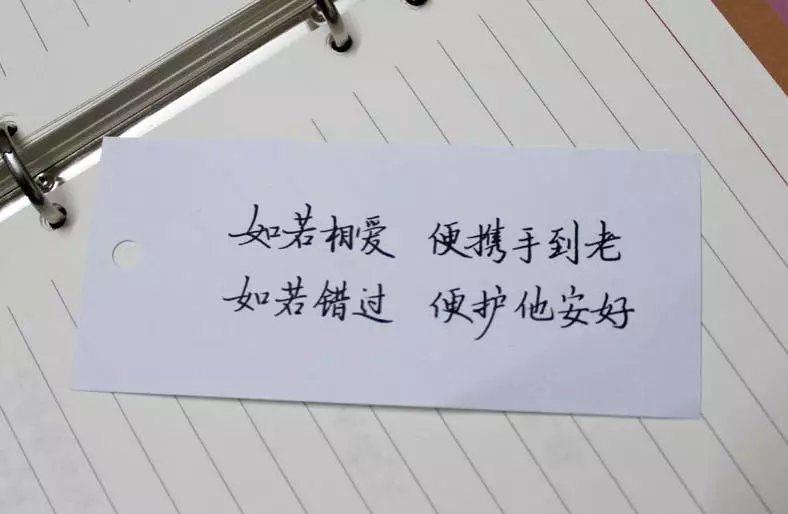 如若相爱 便携手到老
如若错过 便护他安好